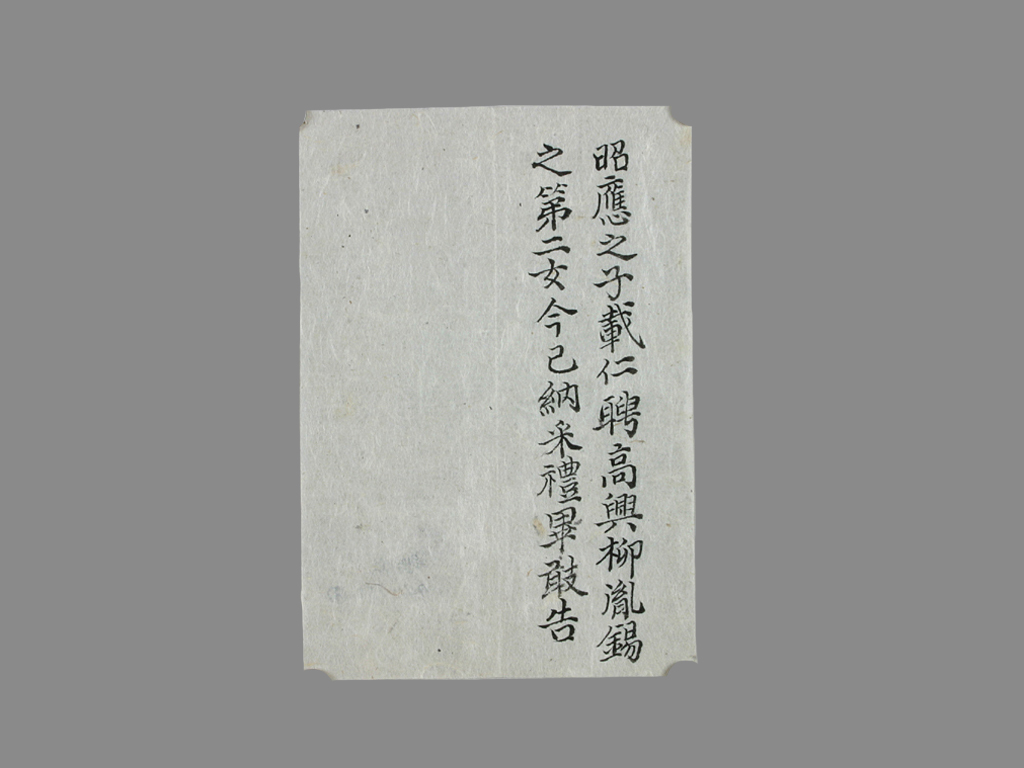 昭應之子載仁聘高興柳胤錫
之第二女今已納采禮畢敢告